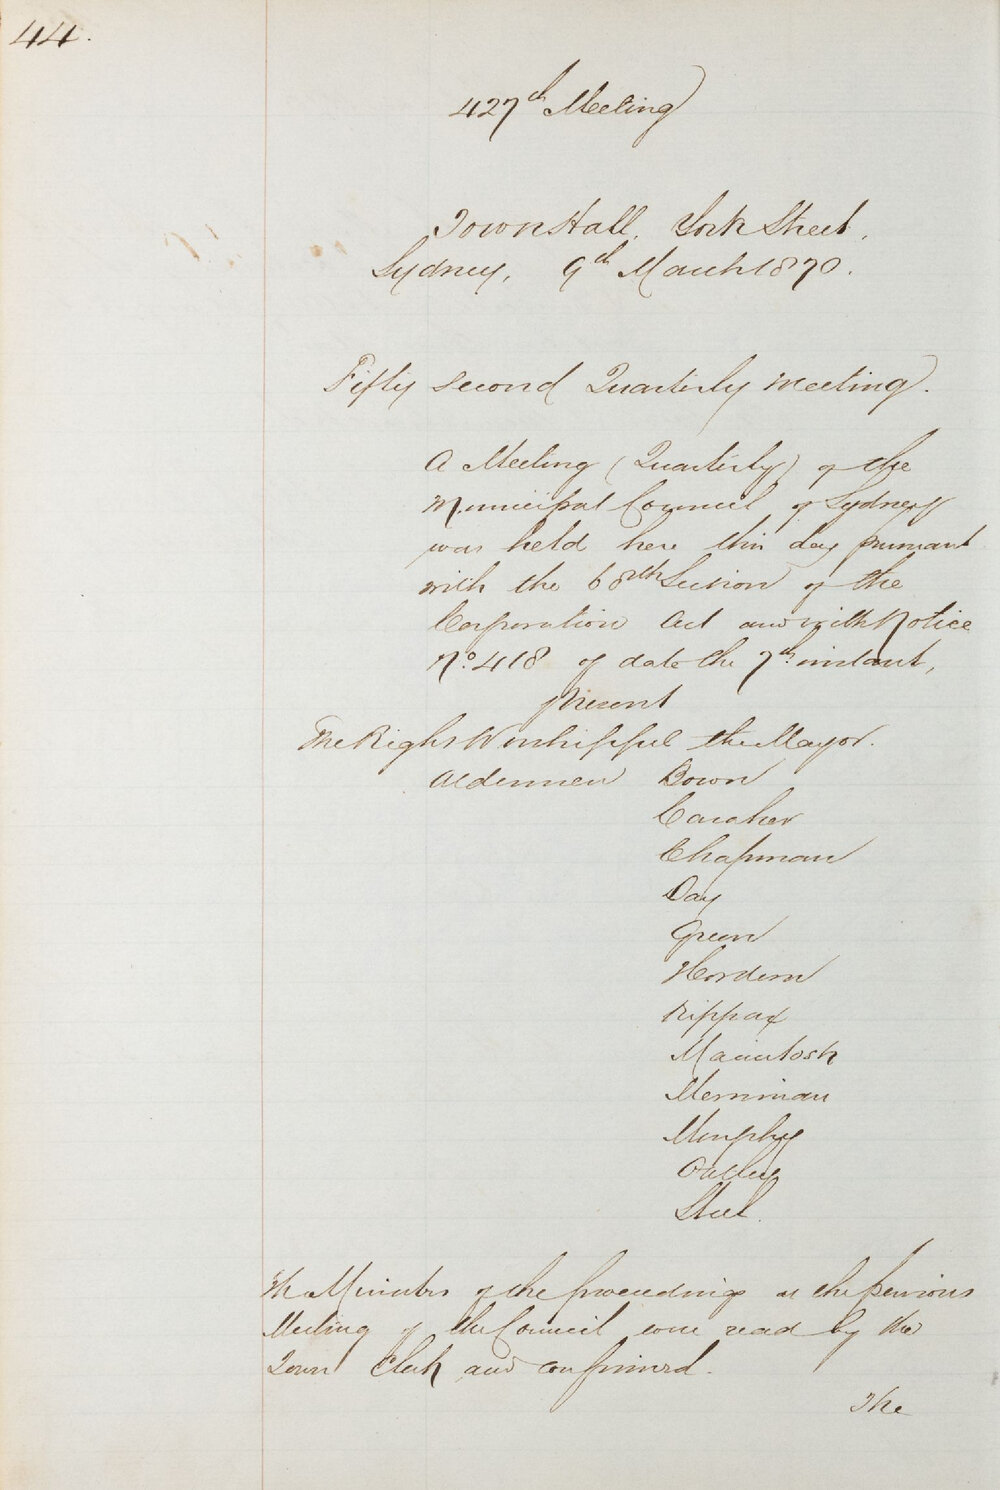 44.
427th Meeting
Town Hall, York Street,
Sydney, 9th March 1870.
Fifty second Quarterly Meeting.
A Meeting (Quarterly) of the
Municipal Council of Sydney
was held here this day pursuant
with the 68th Section of the
Corporation Act and with Notice
No. 418 of date the 7th instant,
present
The Right Worshipful the Mayor.
Aldermen Bown
Caraher
Chapman
Day
Green
Hordern
Kippax
Macintosh
Merriman
Murphy
Oatley
Steel.
The Minutes of the proceedings at the previous
Meeting of the Council were read by the
Town Clerk and confirmed.
The